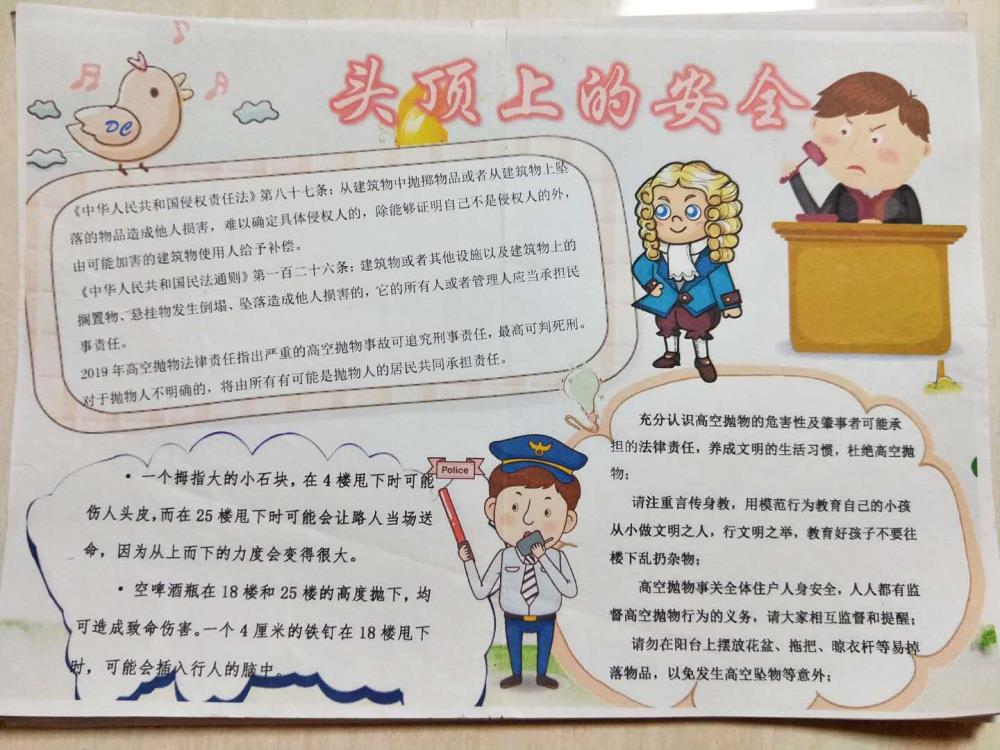 头顶上的安全
DC
《中华人民共和国侵权责任法》第八十七条：从建筑物中抛掷物品或者从建筑物上坠
落的物品造成他人损害，难以确定具体侵权人的，除能够证明自己不是侵权人的外，
由可能加害的建筑物使用人给予补偿。
《中华人民共和国民法通则》第一百二十六条：建筑物或者其他设施以及建筑物上的
搁置物、悬挂物发生倒塌、坠落造成他人损害的，它的所有人或者管理人应当承担民
事责任。
2019年高空抛物法律责任指出严重的高空抛物事故可追究刑事责任，最高可判死刑。
对于抛物人不明确的，将由所有有可能是抛物人的居民共同承担责任。
·一个拇指大的小石块，在4楼甩下时可能
伤人头皮，而在25楼甩下时可能会让路人当场送
命，因为从上而下的力度会变得很大。
·空啤酒瓶在18楼和25楼的高度抛下，均
可造成致命伤害。一个4厘米的铁钉在18楼甩下
时，可能会插入行人的脑中。
Police
充分认识高空抛物的危害性及肇事者可能承
担的法律责任，养成文明的生活习惯，杜绝高空抛
物；
请注重言传身教，用模范行为教育自己的小孩
从小做文明之人，行文明之举，教育好孩子不要往
楼下乱扔杂物；
高空抛物事关全体住户人身安全，人人都有监
督高空抛物行为的义务，请大家相互监督和提醒；
请勿在阳台上摆放花盆、拖把、晾衣杆等易掉
落物品，以免发生高空坠物等意外；